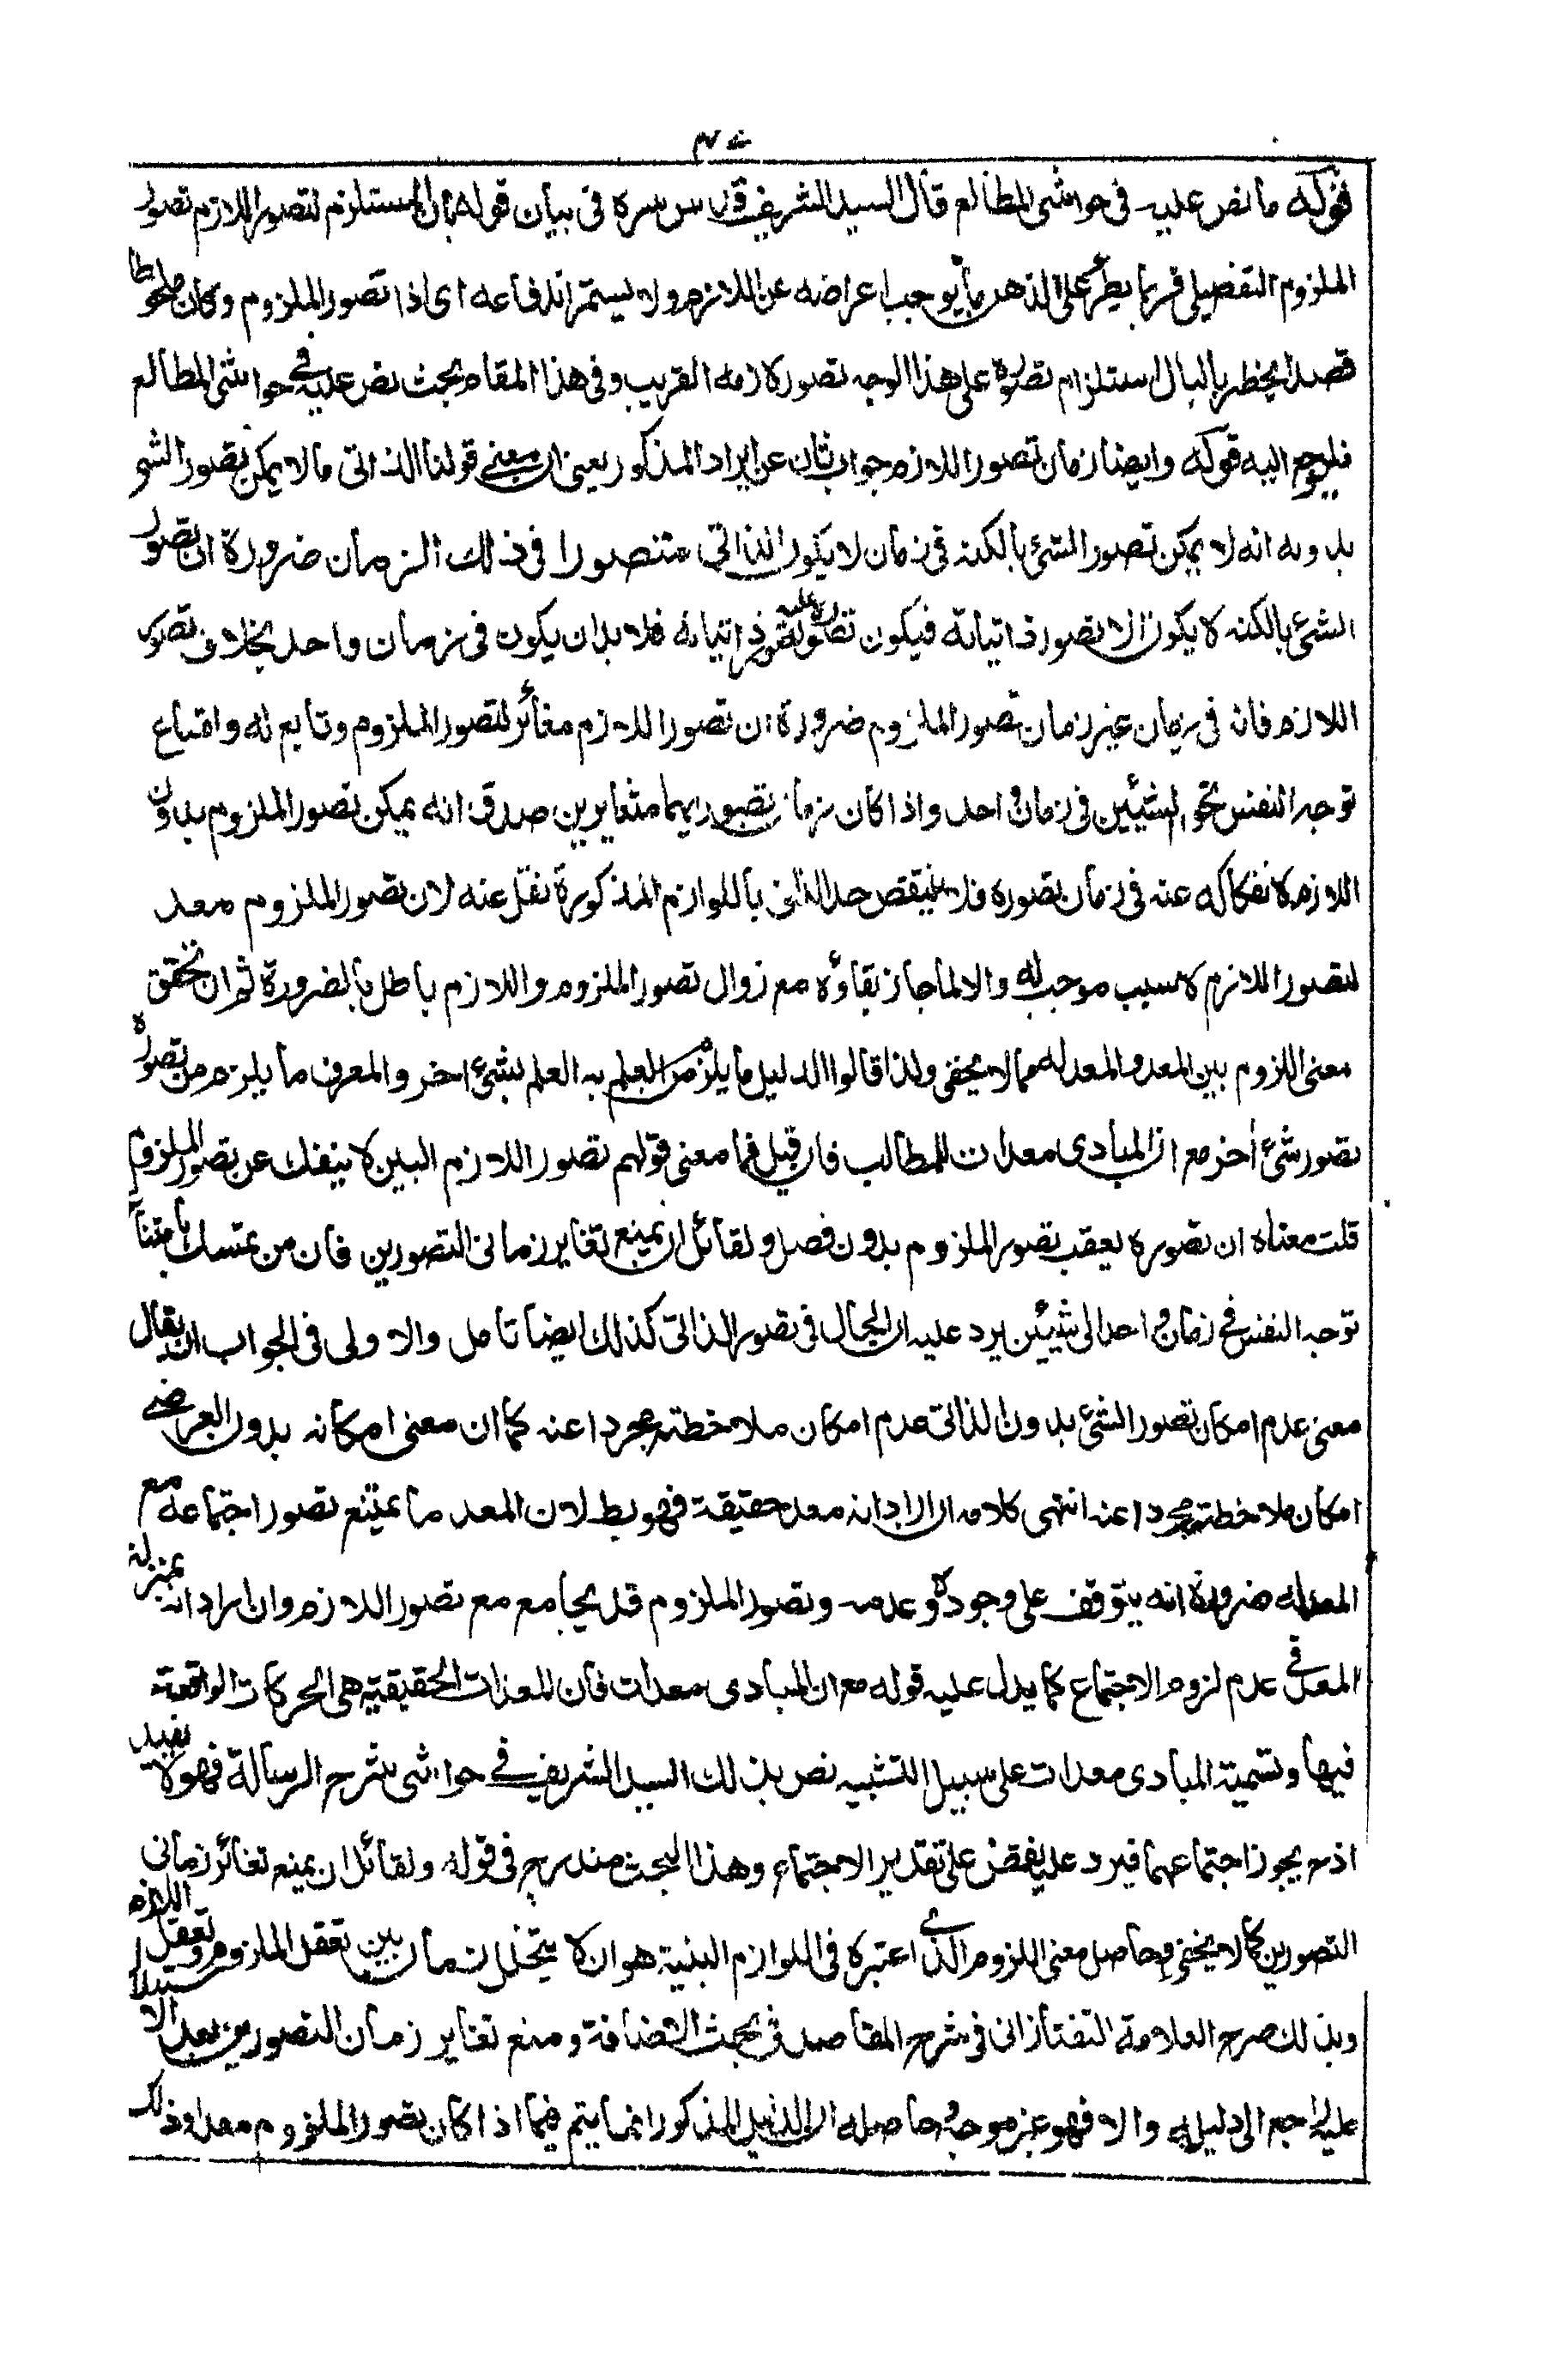 قوله ما نص عليه فى حواشى المطالع قال السيد الشريف قدس سره فى بيان قوله بان المستلزم لتصور اللازم تصور
الملزوم التفصيلى فربما يطرء على الذهن ما يوجب اعراضه عن اللازم ولا يستمر اندفاعه اى اذا تصور الملزوم وكان ملحوظا
قصدا يخطر بالبال استلزام تصوره على هذا الوجه تصور لازمه القريب وفى هذا المقام بحث نص عليه فى حواشى المطالع
فليرجع اليه قوله وايضا زمان تصور اللازم جواب ثان عن ايراد المذكور يعنى ان معنى قولنا الذاتى ما لا يمكن تصور الشئ
بدونه انه لا يمكن تصور الشئ بالكنه فى زمان لا يكون الذاتى متصورا فى ذلك الزمان ضرورة ان تصور
الشئ بالكنه لا يكون الا تصور ذاتياته فيكون تصوره عليه تصور ذاتياته فلا بد ان يكون فى زمان واحد بخلاف تصور
اللازم فانه فى زمان غير زمان تصور الملزوم ضرورة ان تصور اللازم مغائر لتصور الملزوم وتابع له وامتناع
توجه النفس نحو الشيئين فى زمان واحد واذا كان زمان تصوريهما متغايرين صدق انه يمكن تصور الملزوم بدون
اللازم لانفكاكه عنه فى زمان تصوره فلا ينتقض حد الذاتى باللوازم المذكورة نقل عنه لان تصور الملزوم معد
لتصور اللازم لا سبب موجب له والا لما جاز بقاؤه مع زوال تصور الملزوم واللازم باطل بالضرورة ثم ان تحقق
معنى اللزوم بين المعد والمعد له مما لا يخفى ولذا قالوا الدليل ما يلزم من العلم به العلم بشئ اخر والمعرف ما يلزم من تصوره
تصور شئ اخر مع ان المبادى معدات للمطالب فان قيل فما معنى قولهم تصور اللازم البين لا ينفك عن تصور الملزوم
قلت معناه ان تصوره يعقب تصور الملزوم بدون فصل ولقائل ان يمنع تغاير زمانى التصورين فان من يمتسك بامتناع
توجه النفس فى زمان واحد الى شيئين يرد عليه ان الحال فى تصور الذاتى كذلك ايضا تامل والاولى فى الجواب ان يقال
معنى عدم امكان تصور الشئ بدون الذاتى عدم امكان ملاحظته مجردا عنه كما ان معنى امكانه بدون العرضى
امكان ملاحظته مجردا عنه انتهى كلامه ان اراد انه معد حقيقة فهو بط لان المعد ما يمتنع تصور اجتماعه مع
المعد له ضرورة انه يتوقف على وجوده وعدمه وتصور الملزوم قد يجامع مع تصور اللازم وان اراد انه بمنزلة
المعد فى عدم لزوم الاجتماع كما يدل عليه قوله مع ان المبادى معدات فان المعدات الحقيقية هى الحركات الواقعة
فيها وتسمية المبادى معدات على سبيل التشبيه نص بذلك السيد الشريف فى حواشى شرح الرسالة فهو لا يفيد
اذ يجوز اجتماعهما فيرد عليه نقض على تقدير الاجتماع وهذا البحث مندرج فى قوله ولقائل ان يمنع تغائر زمانى
التصورين كما لا يخفى وحاصل معنى اللزوم الذى اعتبره فى اللوازم البينة هو ان لا يتخلل زمان بين تعقل الملزوم وتعقل اللازم
وبذلك صرح العلامة التفتازانى فى شرح المقاصد فى بحث التضافة ومنع تغاير زمان التصورين بعد الاستدلال
عليه راجع الى دليله والا فهو غير موجه وحاصله ان الدليل المذكور انما يتم فيما اذا كان تصور الملزوم معدا وذلك